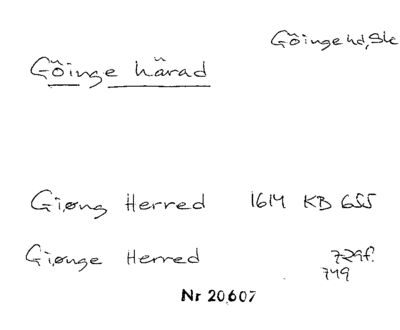 Göinge hd, Sk
Göinge härad
Giøng Herred 1614 KB 655
Giønge Herred 729f.
749
Nr 20.607